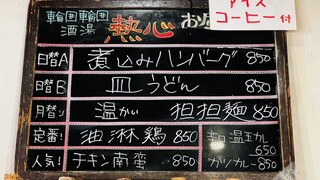 アイス
コーヒー付
輪囲輪囲
酒湯
熱心
お
日替A 煮込みハンバーグ 850
日替B 皿うどん 850
月替り 温かい 担担麺 850
定番! 油淋鶏 850
温玉カレー
650
人気! チキン南蛮 850
カツカレー 850